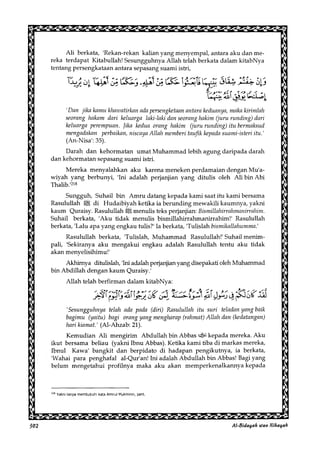 Ali berkata, 'Rekan-rekan kalian yang menyempal, antara aku dan me-
reka terdapat Kitabullah! Sesungguhnya Allah telah berkata dalam kitabNya
tentang persengkataan antara sepasang suami istri,
وَإِنْ خِفْتُمْ شِقَاقَ بَيْنِهِمَا فَابْعَثُوا حَكَمًا مِنْ أَهْلِهِ وَحَكَمًا مِنْ أَهْلِهَا إِنْ
يُرِيدَا إِصْلَاحًا يُوَفِّقِ اللَّهُ بَيْنَهُمَا
'Dan jika kamu khawatirkan ada persengketaan antara keduanya, maka kirimlah
seorang hakam dari keluarga laki-laki dan seorang hakim (juru runding) dari
keluarga perempuan. Jika kedua orang hakim (juru runding) itu bermaksud
mengadakan perbaikan, niscaya Allah memberi taufik kepada suami-isteri itu.'
(An-Nisa': 35).
Darah dan kehormatan umat Muhammad lebih agung daripada darah
dan kehormatan sepasang suami istri.
Mereka menyalahkan aku karena meneken perdamaian dengan Mu'a-
wiyah yang berbunyi, 'Ini adalah perjanjian yang ditulis oleh Ali bin Abi
Thalib.'
Sungguh, Suhail bin Amru datang kepada kami saat itu kami bersama
Rasulullah ﷺ di Hudaibiyah ketika ia berunding mewakili kaumnya, yakni
kaum Quraisy. Rasulullah ﷺ menulis teks perjanjian: Bismillahirrahmanirrahim.'
Suhail berkata, 'Aku tidak menulis bismillahirrahmanirrahim!' Rasulullah
berkata, 'Lalu apa yang engkau tulis?' Ia berkata, 'Tulislah bismikallahumma.'
Rasulullah berkata, 'Tulislah, Muhammad Rasulullah!' Suhail menim-
pali, 'Sekiranya aku mengakui engkau adalah Rasulullah tentu aku tidak
akan menyelisihimu!'
Akhirnya ditulislah, 'Ini adalah perjanjian yang disepakati oleh Muhammad
bin Abdillah dengan kaum Quraisy.'
Allah telah berfirman dalam kitabNya:
لَقَدْ كَانَ لَكُمْ فِي رَسُولِ اللَّهِ أُسْوَةٌ حَسَنَةٌ لِمَنْ كَانَ يَرْجُو اللَّهَ وَالْيَوْمَ الْآخِرَ
'Sesungguhnya telah ada pada (diri) Rasulullah itu suri teladan yang baik
bagimu (yaitu) bagi orang yang mengharap (rahmat) Allah dan (kedatangan)
hari kiamat.' (Al-Ahzab: 21).
Kemudian Ali mengirim Abdullah bin Abbas kepada mereka. Aku
ikut bersama beliau (yakni Ibnu Abbas). Ketika kami tiba di markas mereka,
Ibnul Kawa' bangkit dan berpidato di hadapan pengikutnya, ia berkata,
'Wahai para penghafal al-Qur'an! Ini adalah Abdullah bin Abbas! Bagi yang
belum mengetahui profilnya maka aku akan memperkenalkannya kepada
Yakni tanpa membubuhi kata Amirul Mukminin, pent.
502
Al-Bidayah wan Nihayah